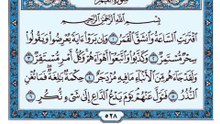 سورة القمر
بسم الله الرحمن الرحيم
اقتربت الساعة وانشق القمر ۝١ وإن يروا ءاية يعرضوا ويقولوا
سحر مستمر ۝٢ وكذبوا واتبعوا أهواءهم وكل أمر مستقر ۝٣
ولقد جاءهم من الأنباء ما فيه مزدجر ۝٤ حكمة بالغة فما تغن
النذر ۝٥ فتول عنهم يوم يدع الداع إلى شيء نكر ۝٦
٥٢٨